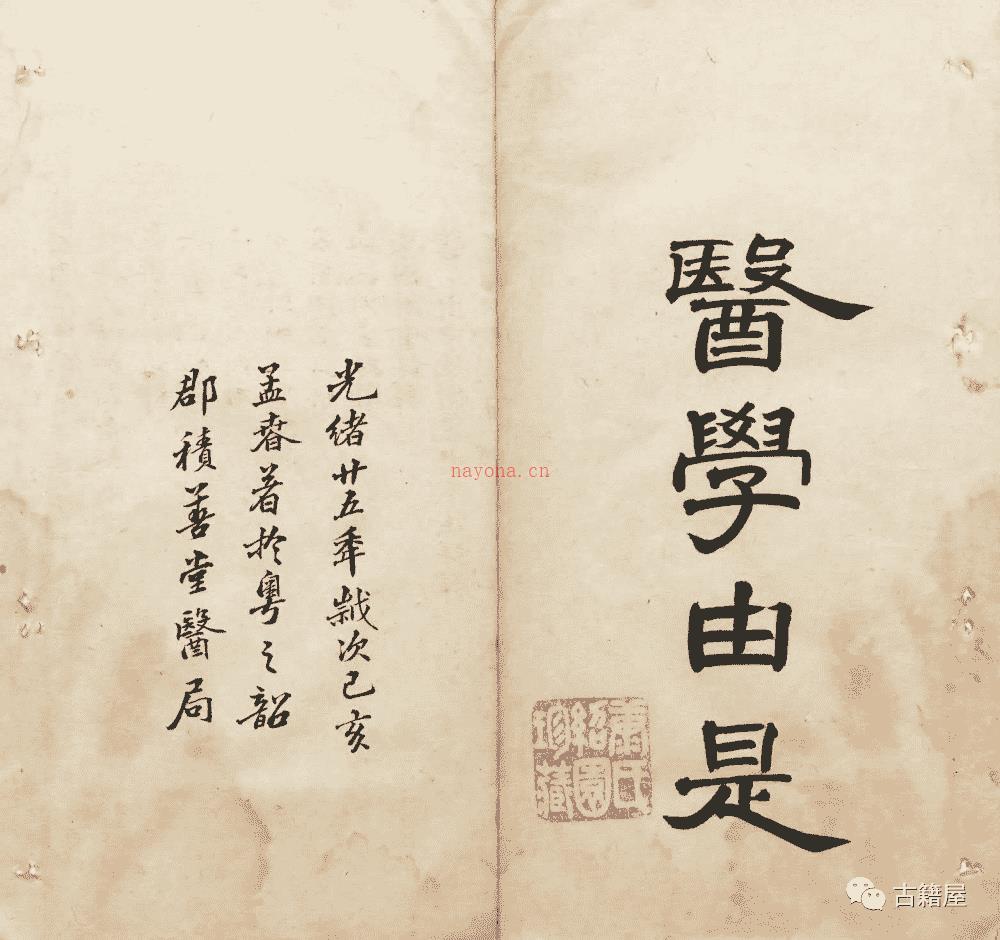 醫學由是
光緒廿五年歲次己亥
孟春着於粵之韶
郡積善堂醫局
蕭氏
紹園
珍藏
nayona.cn
古籍屋